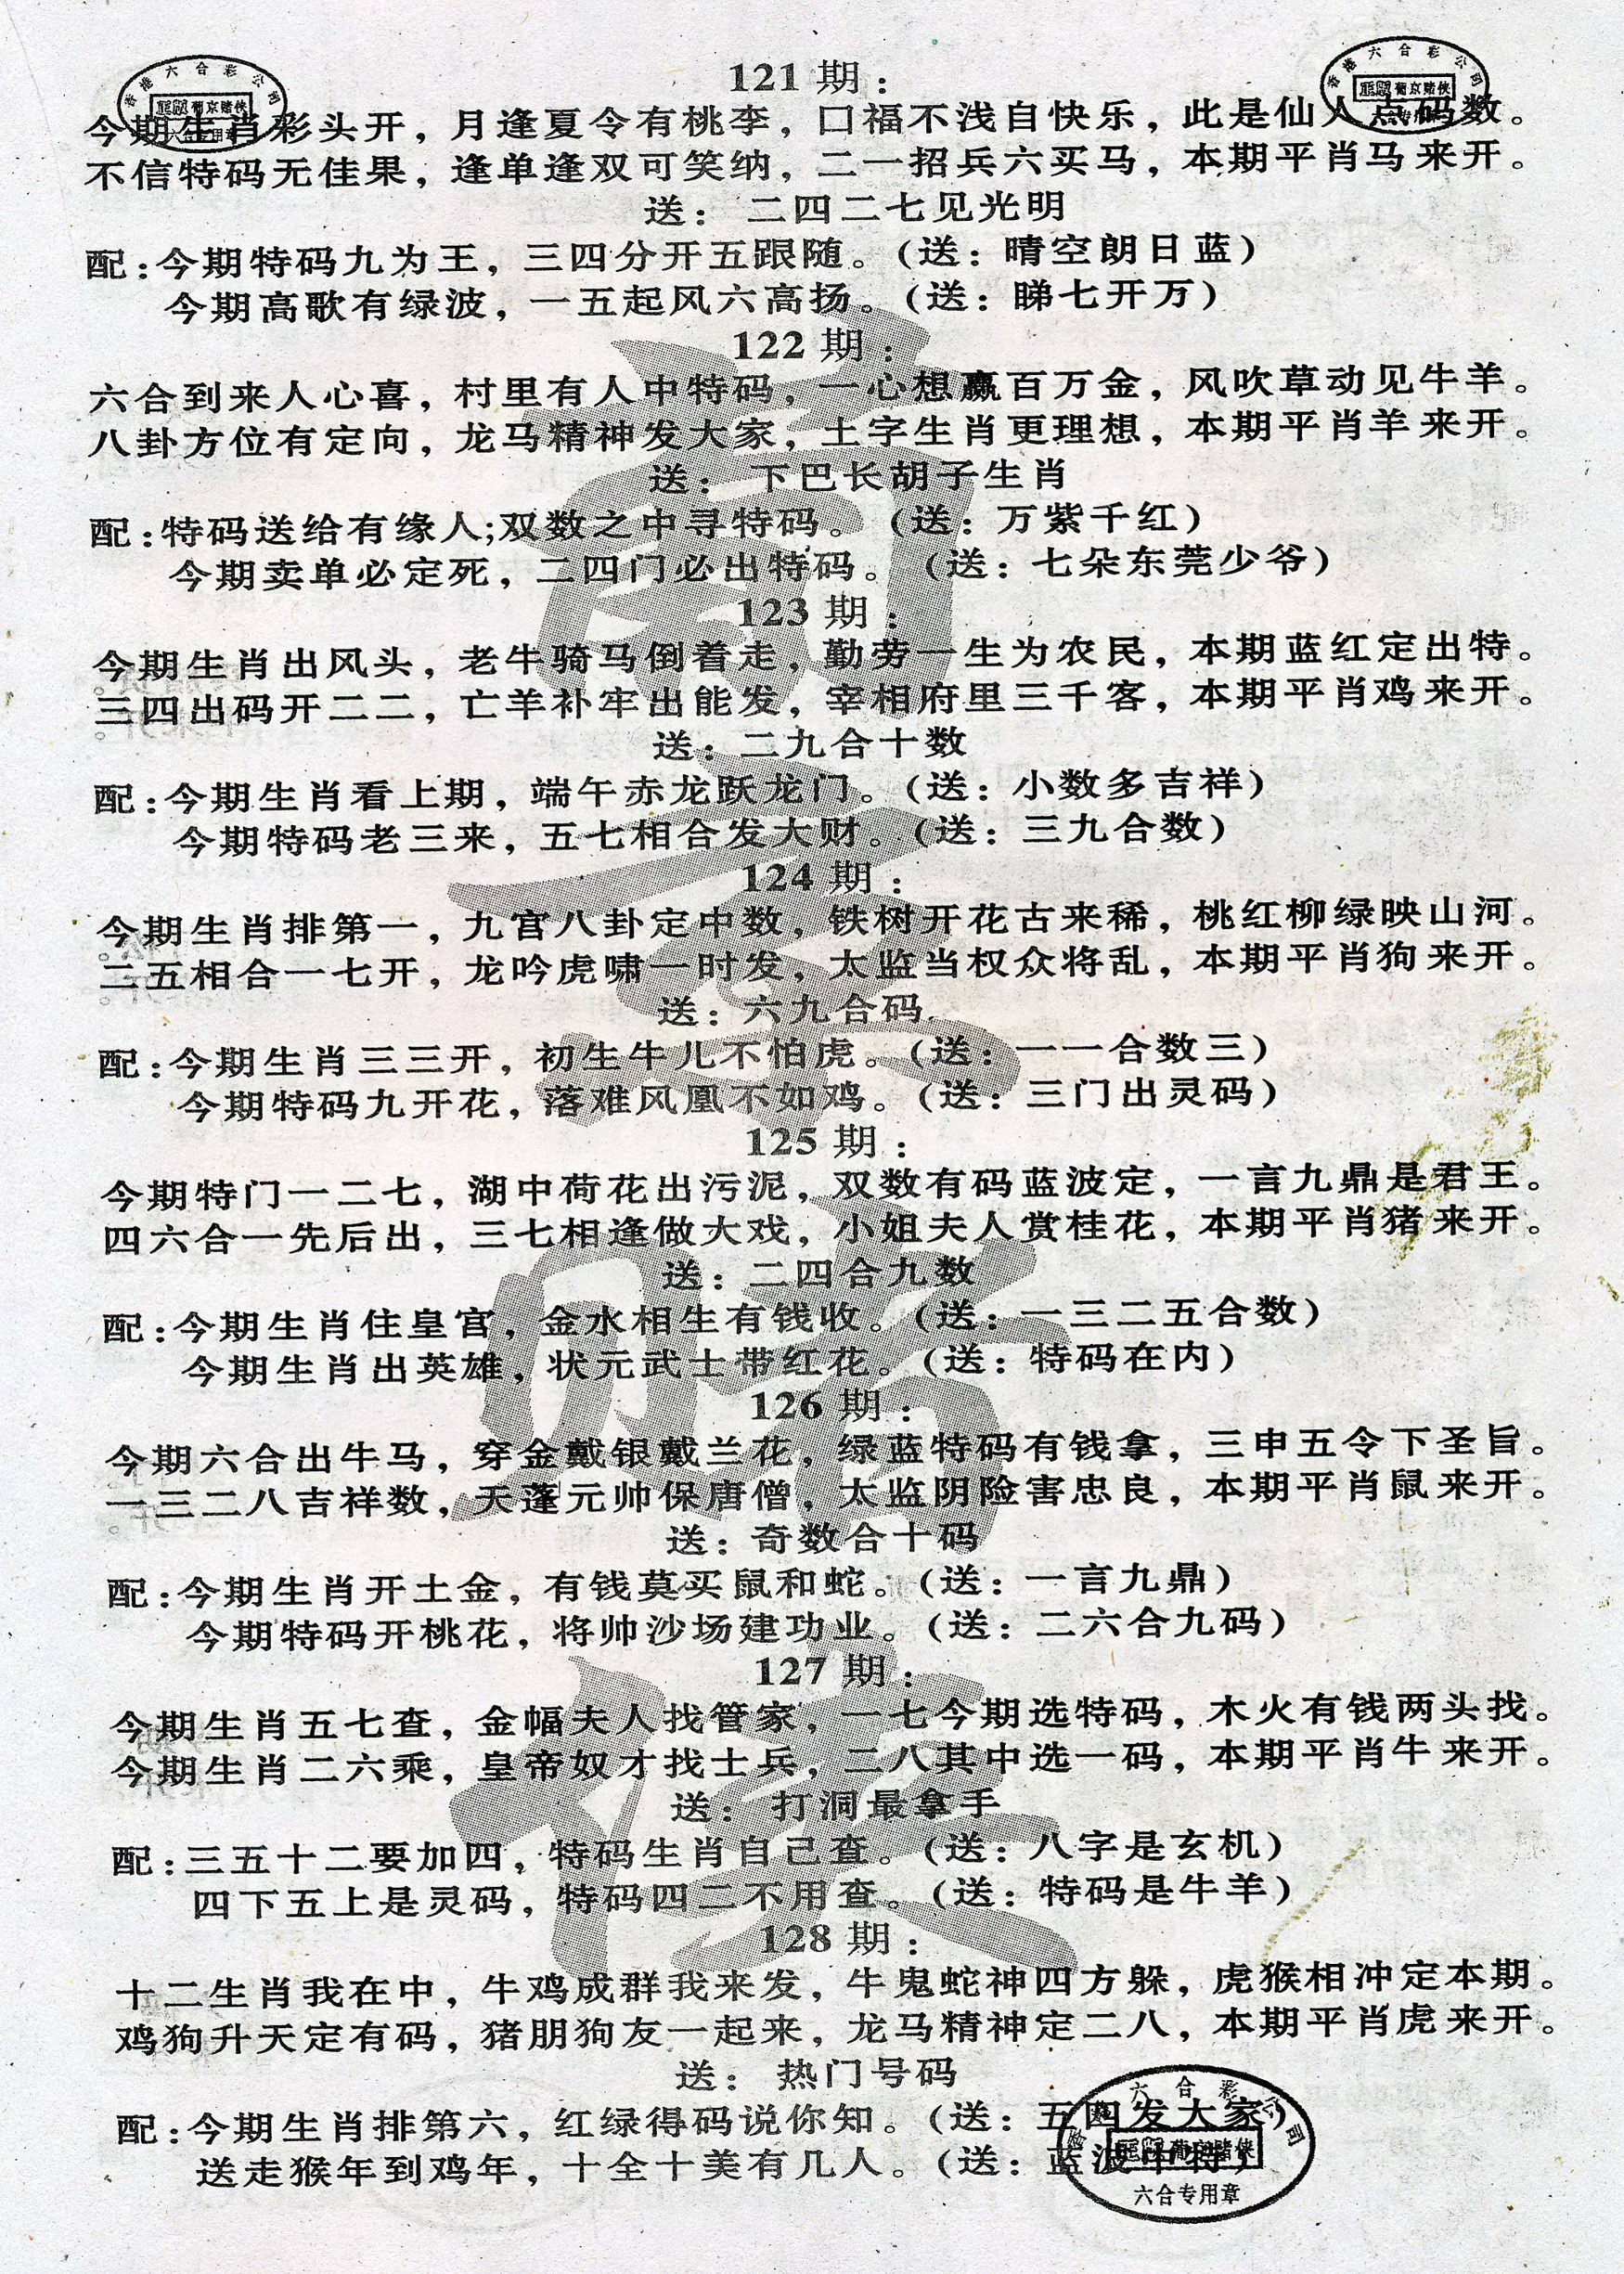 121 期：
今期生肖彩头开，月逢夏令有桃李，口福不浅自快乐，此是仙人点码数。
不信特码无佳果，逢单逢双可笑纳，二一招兵六买马，本期平肖马来开。
送：二四二七见光明
配：今期特码九为王，三四分开五跟随。（送：晴空朗日蓝）
今期高歌有绿波，一五起风六高扬。（送：睇七开万）
122 期：
六合到来人心喜，村里有人中特码，一心想赢百万金，风吹草动见牛羊。
八卦方位有定向，龙马精神发大家，土字生肖更理想，本期平肖羊来开。
送：下巴长胡子生肖
配：特码送给有缘人;双数之中寻特码。（送：万紫千红）
今期卖单必定死，二四门必出特码。（送：七朵东莞少爷）
123 期：
今期生肖出风头，老牛骑马倒着走，勤劳一生为农民，本期蓝红定出特。
三四出码开二二，亡羊补牢出能发，宰相府里三千客，本期平肖鸡来开。
送：二九合十数
配：今期生肖看上期，端午赤龙跃龙门。（送：小数多吉祥）
今期特码老三来，五七相合发大财。（送：三九合数）
124 期：
今期生肖排第一，九宫八卦定中数，铁树开花古来稀，桃红柳绿映山河。
二五相合一七开，龙吟虎啸一时发，太监当权众将乱，本期平肖狗来开。
送：六九合码
配：今期生肖三三开，初生牛儿不怕虎。（送：一一合数三）
今期特码九开花，落难风凰不如鸡。（送：三门出灵码）
125 期：
今期特门一二七，湖中荷花出污泥，双数有码蓝波定，一言九鼎是君王。
四六合一先后出，三七相逢做大戏，小姐夫人赏桂花，本期平肖猪来开。
送：二四合九数
配：今期生肖住皇宫，金水相生有钱收。（送：一三二五合数）
今期生肖出英雄，状元武士带红花。（送：特码在内）
126 期：
今期六合出牛马，穿金戴银戴兰花，绿蓝特码有钱拿，三申五令下圣旨。
一三二八吉祥数，天蓬元帅保唐僧，太监阴险害忠良，本期平肖鼠来开。
送：奇数合十码
配：今期生肖开土金，有钱莫买鼠和蛇。（送：一言九鼎）
今期特码开桃花，将帅沙场建功业。（送：二六合九码）
127 期：
今期生肖五七查，金幅夫人找管家，一七今期选特码，木火有钱两头找。
今期生肖二六乘，皇帝奴才找士兵，二八其中选一码，本期平肖牛来开。
送：打洞最拿手
配：三五十二要加四，特码生肖自己查。（送：八字是玄机）
四下五上是灵码，特码四二不用查。（送：特码是牛羊）
128 期：
十二生肖我在中，牛鸡成群我来发，牛鬼蛇神四方躲，虎猴相冲定本期。
鸡狗升天定有码，猪朋狗友一起来，龙马精神定二八，本期平肖虎来开。
送：热门号码
配：今期生肖排第六，红绿得码说你知。（送：五四发大家）
送走猴年到鸡年，十全十美有几人。（送：蓝波中特）
香港六合彩公司
葡京赌侠
六合专用章